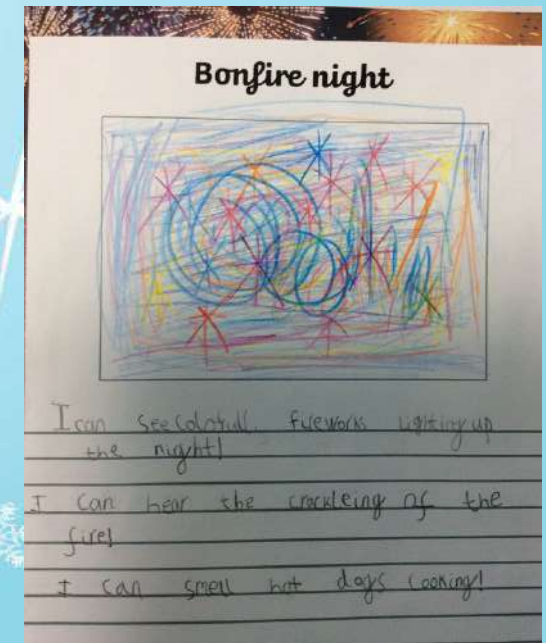 Bonfire night
I can see colorfull fireworks lighting up
the night!
I can hear the crackleing of the
fire!
I can smell hot dogs cooking!